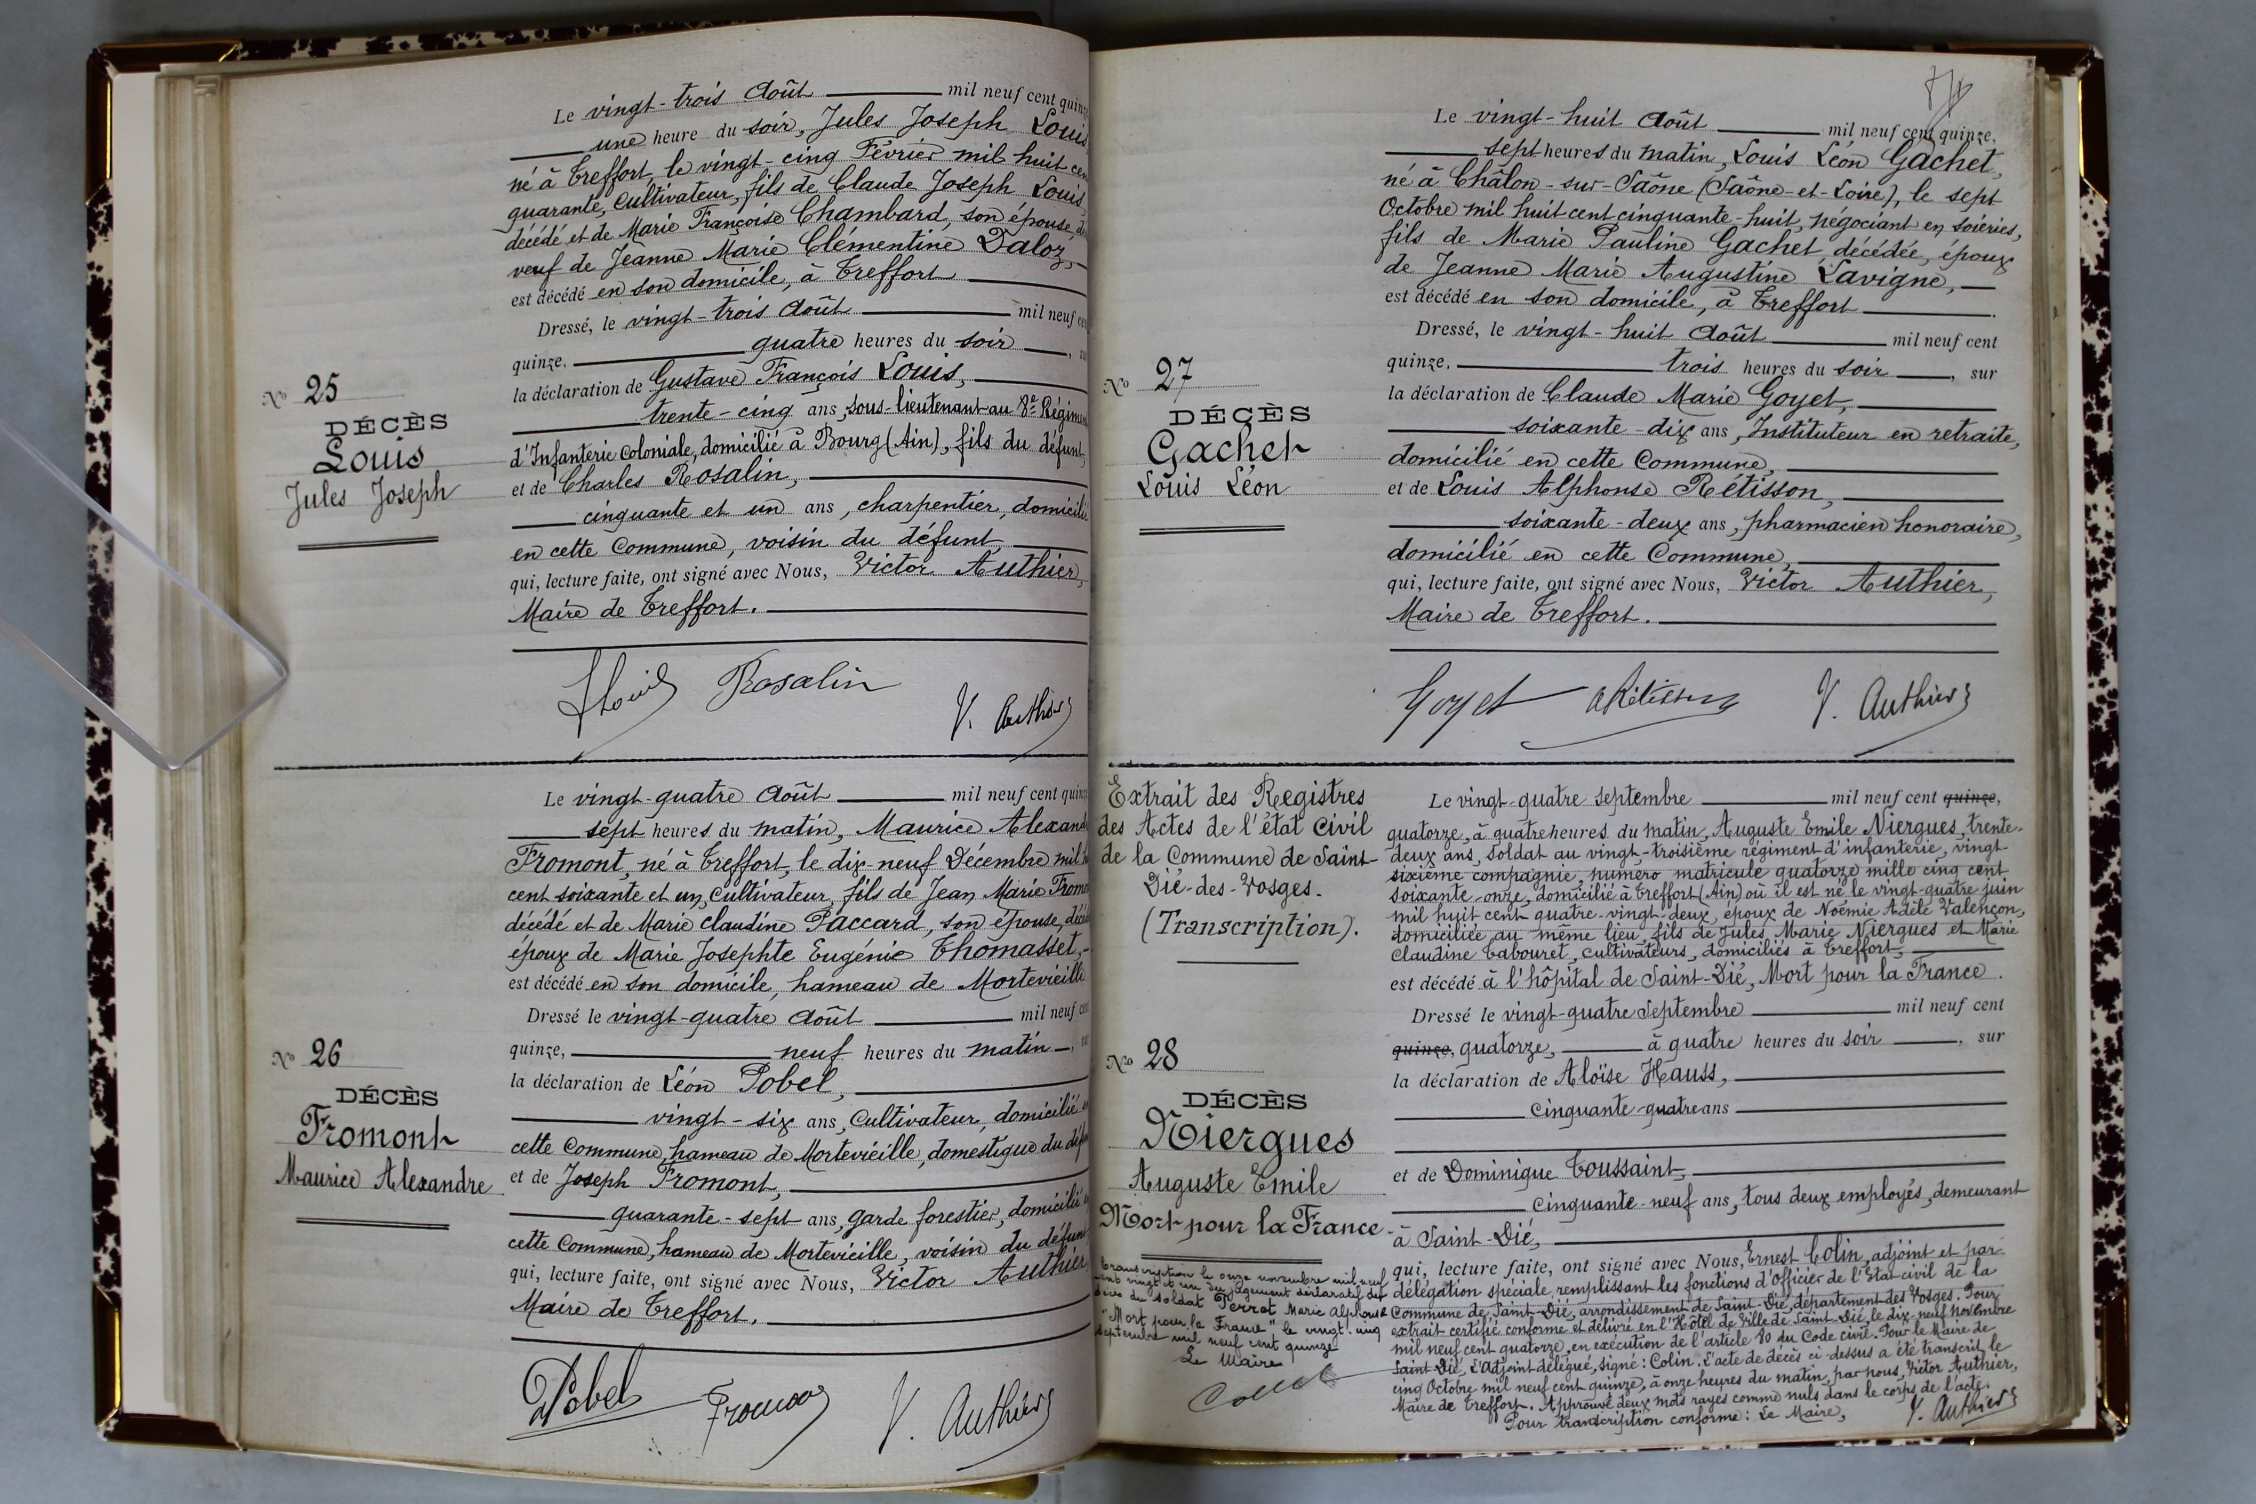 Le vingt-trois Août mil neuf cent quinze
une heure du soir, Jules Joseph Louis
né à Treffort, le vingt-cinq Février mil huit cent
quarante, cultivateur, fils de Claude Joseph Louis,
décédé et de Marie Françoise Chambard, son épouse,
veuf de Jeanne Marie Clémentine Daloz,
est décédé en son domicile, à Treffort
Dressé, le vingt-trois Août mil neuf cent
quinze, quatre heures du soir, sur
la déclaration de Gustave François Louis,
trente-cinq ans, sous-lieutenant au 8e Régiment
d'Infanterie Coloniale, domicilié à Bourg (Ain), fils du défunt,
et de Charles Rosalin,
cinquante et un ans, charpentier, domicilié
en cette Commune, voisin du défunt,
qui, lecture faite, ont signé avec Nous, Victor Authier,
Maire de Treffort.
No 25
DÉCÈS
Louis
Jules Joseph
Louis Rosalin V. Authier
Le vingt-quatre Août mil neuf cent quinze
sept heures du matin, Maurice Alexandre
Fromont, né à Treffort, le dix-neuf Décembre mil huit
cent soixante et un, cultivateur, fils de Jean Marie Fromont
décédé et de Marie Claudine Paccard, son épouse, décédée
époux de Marie Josephte Eugénie Thomasset,
est décédé en son domicile, hameau de Mortevieille
Dressé le vingt-quatre Août mil neuf cent
quinze, neuf heures du matin, sur
la déclaration de Léon Pobel,
vingt-six ans, cultivateur, domicilié en
cette Commune, hameau de Mortevieille, domestique du défunt
et de Joseph Fromont,
quarante-sept ans, garde forestier, domicilié en
cette Commune, hameau de Mortevieille, voisin du défunt
qui, lecture faite, ont signé avec Nous, Victor Authier,
Maire de Treffort.
No 26
DÉCÈS
Fromont
Maurice Alexandre
Pobel Fromont V. Authier
Le vingt-huit Août mil neuf cent quinze,
sept heures du matin, Louis Léon Gachet,
né à Châlon-sur-Saône (Saône-et-Loire), le sept
Octobre mil huit cent cinquante-huit, négociant en soieries,
fils de Marie Pauline Gachet, décédée, époux
de Jeanne Marie Augustine Lavigne,
est décédé en son domicile, à Treffort
Dressé, le vingt-huit Août mil neuf cent
quinze, trois heures du soir, sur
la déclaration de Claude Marie Goyet,
soixante-dix ans, Instituteur en retraite,
domicilié en cette Commune,
et de Louis Alphonse Rétisson,
soixante-deux ans, pharmacien honoraire,
domicilié en cette Commune,
qui, lecture faite, ont signé avec Nous, Victor Authier,
Maire de Treffort.
No 27
DÉCÈS
Gachet
Louis Léon
Goyet A Rétisson V. Authier
Extrait des Registres
des Actes de l'état civil
de la Commune de Saint-
Dié-des-Vosges.
(Transcription).
Le vingt-quatre septembre mil neuf cent quinze,
quatorze, à quatre heures du matin, Auguste Emile Niergues, trente-
deux ans, soldat au vingt-troisième régiment d'infanterie, vingt-
sixième compagnie, numéro matricule quatorze mille cinq cent
soixante-onze, domicilié à Treffort (Ain) où il est né le vingt-quatre juin
mil huit cent quatre-vingt-deux, époux de Noémie Adèle Valençon,
domiciliée au même lieu, fils de Jules Marie Niergues et Marie
Claudine Tabouret, cultivateurs, domiciliés à Treffort,
est décédé à l'hôpital de Saint-Dié, Mort pour la France.
Dressé le vingt-quatre Septembre mil neuf cent
quinze, quatorze, à quatre heures du soir, sur
la déclaration de Aloïse Hauss,
Cinquante-quatre ans
et de Dominique Toussaint,
cinquante-neuf ans, tous deux employés, demeurant
à Saint-Dié,
qui, lecture faite, ont signé avec Nous, Ernest Colin, adjoint et par
délégation spéciale, remplissant les fonctions d'Officier de l'Etat-civil de la
Commune de Saint-Dié, arrondissement de Saint-Dié, département des Vosges. Pour
extrait certifié conforme et délivré en l'Hôtel de Ville de Saint-Dié, le dix-neuf novembre
mil neuf cent quatorze, en exécution de l'article 80 du Code civil. Pour le Maire de
Saint-Dié, l'Adjoint délégué, signé: Colin. L'acte de décès ci-dessus a été transcrit le
cinq Octobre mil neuf cent quinze, à onze heures du matin, par nous, Victor Authier,
Maire de Treffort. Approuvé deux mots rayés comme nuls dans le corps de l'acte.
Pour transcription conforme: Le Maire, V. Authier
No 28
DÉCÈS
Niergues
Auguste Emile
Mort pour la France
Transcription le onze novembre mil neuf
cent vingt et un du jugement déclaratif du
décès du soldat Perrot Marie Alphonse
"Mort pour la France" le vingt-cinq
septembre mil neuf cent quinze
Le Maire